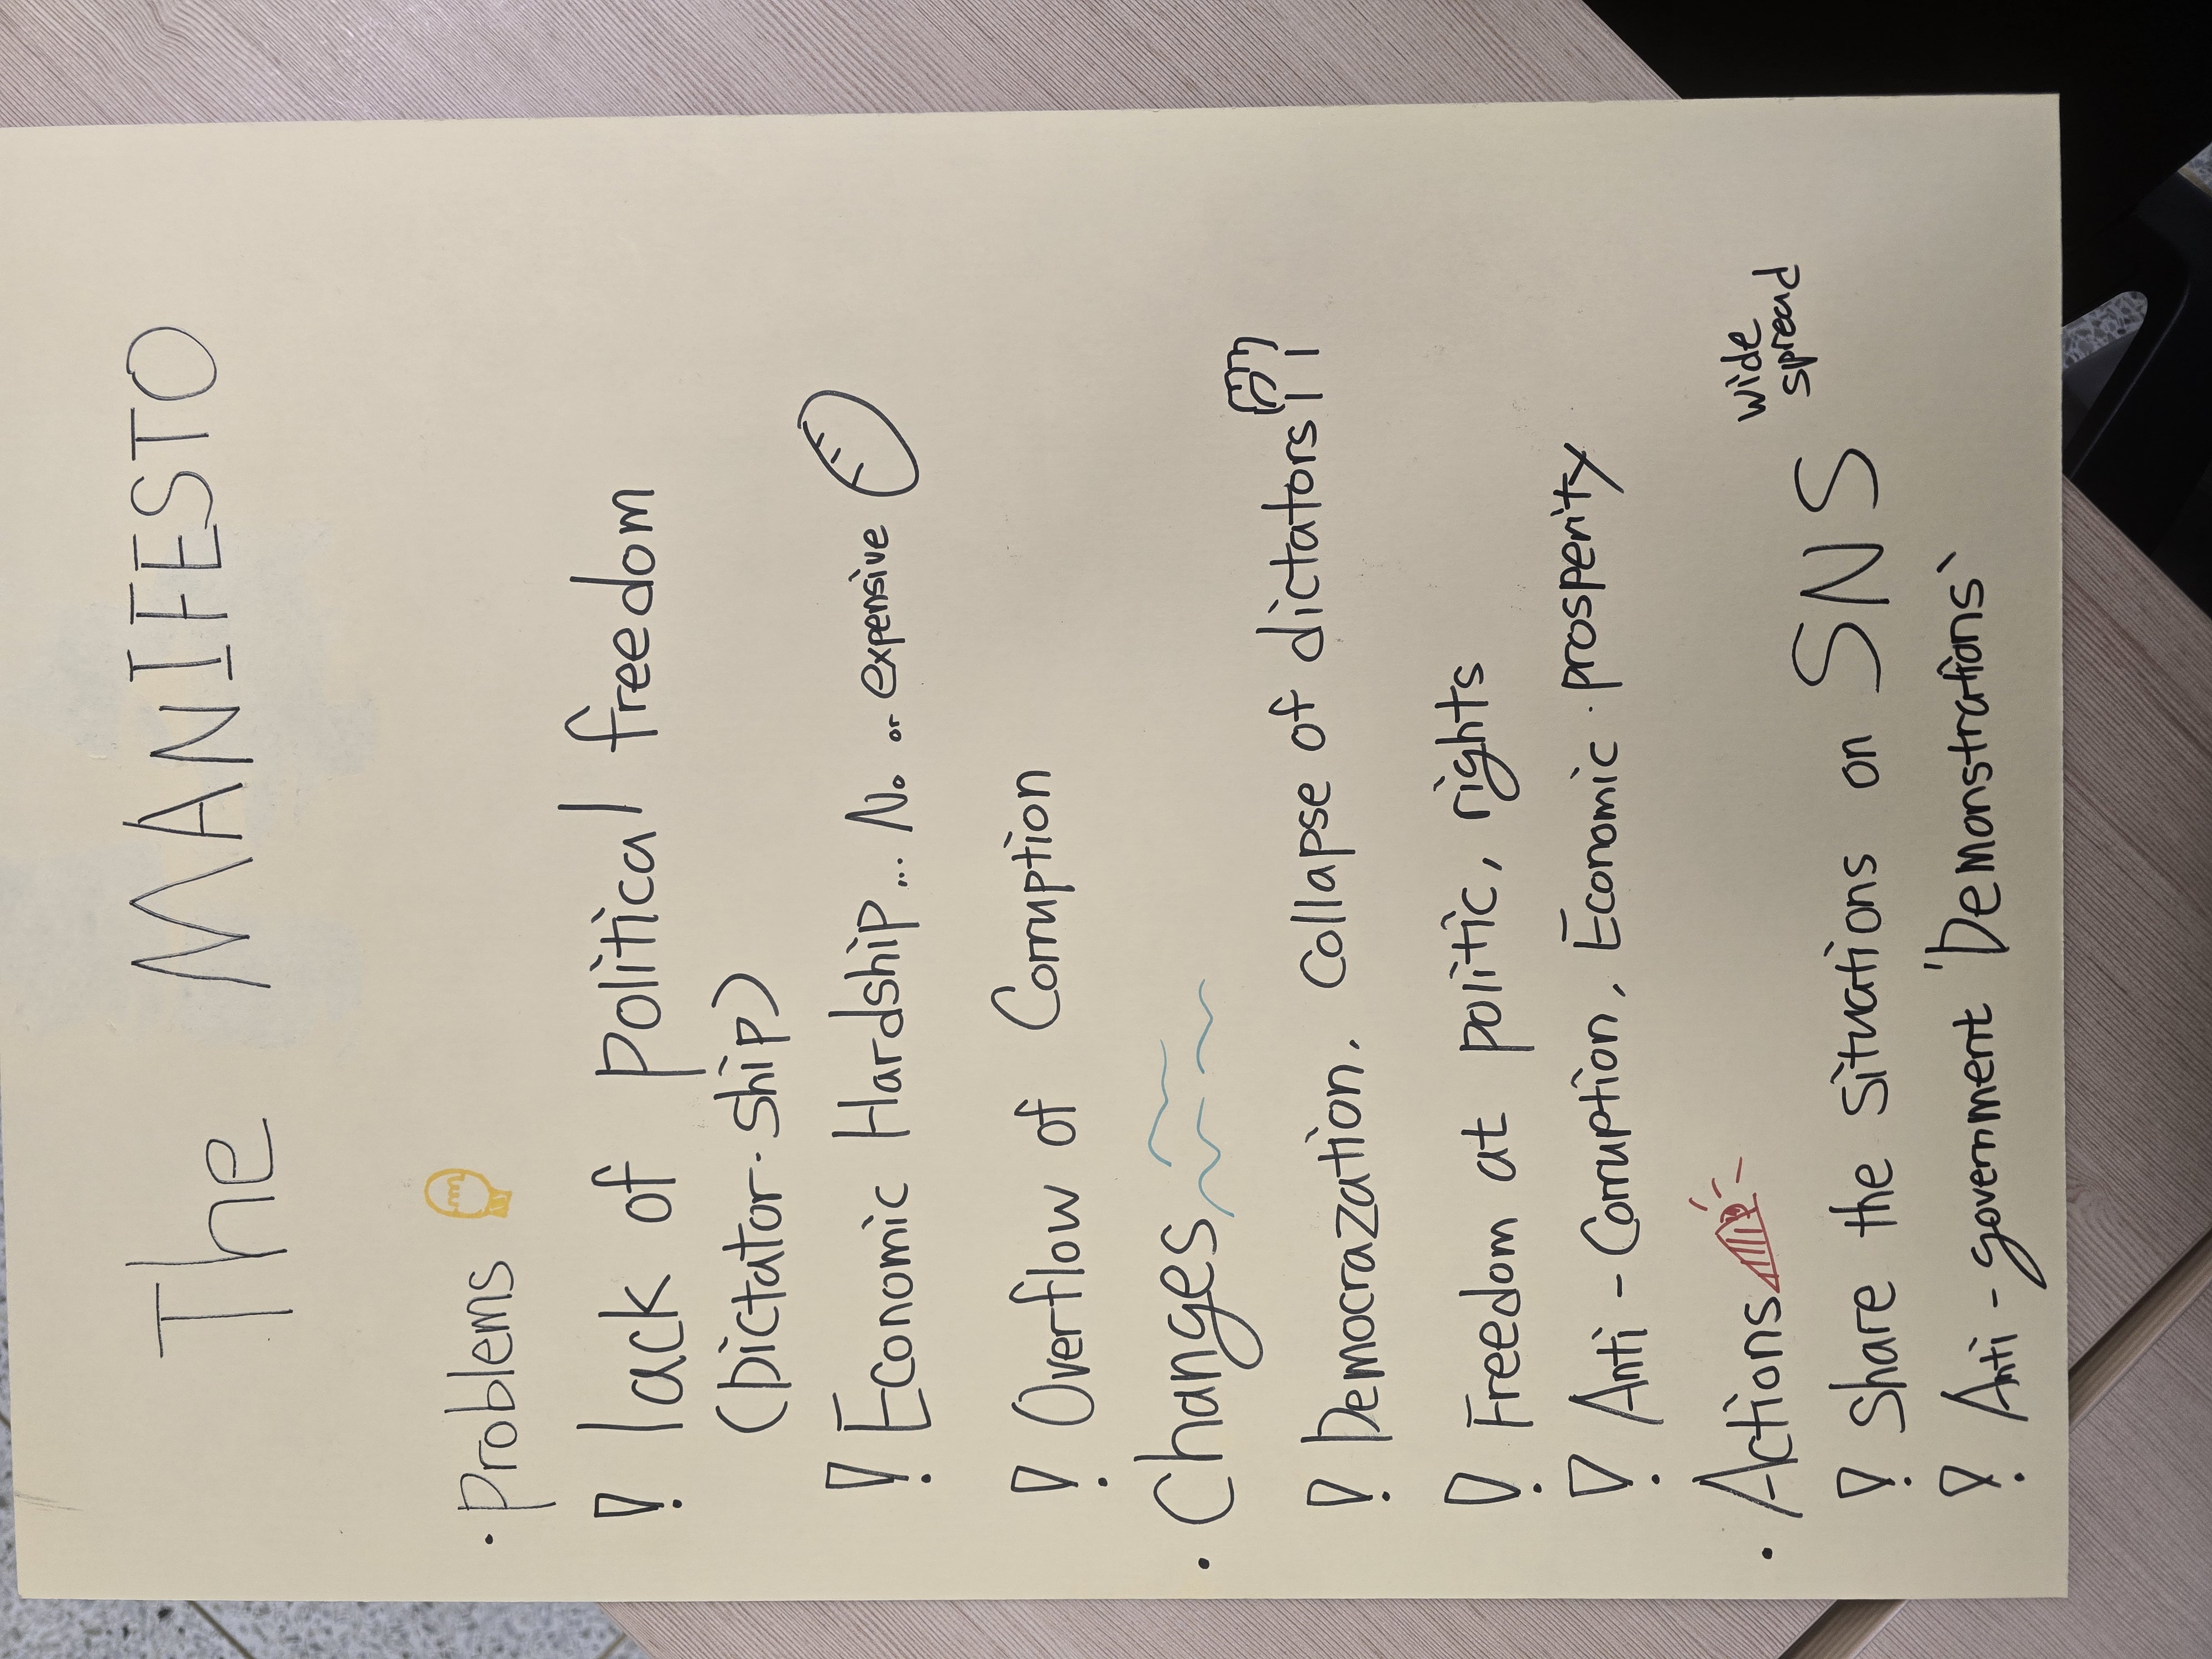 The MANIFESTO
· Problems
! lack of political freedom
(Dictator-ship)
! Economic Hardship... No.. or expensive
! Overflow of Corruption
· Changes
! Democrazation. Collapse of dictators
! Freedom at politic, rights
! Anti-Corruption, Economic prosperity
· Actions
! Share the situations on SNS wide spread
! Anti-government 'Demonstrations'